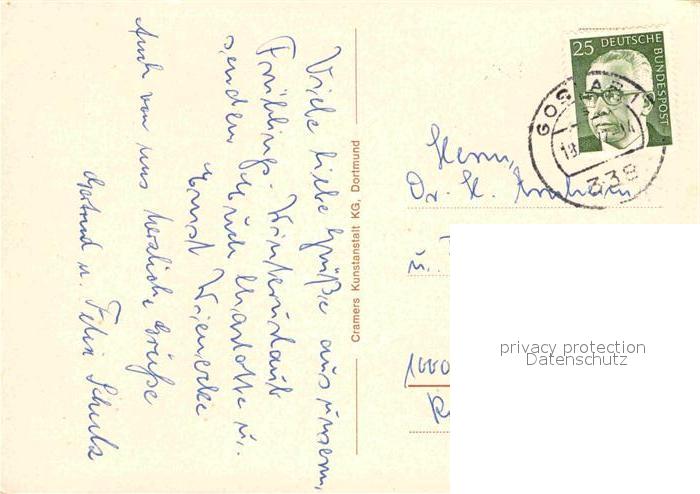 Viele liebe Grüße aus unserm
Frühlings-Winterurlaub
senden Euch Charlotte u.
Ernst Wienecke
Auch von uns herzliche Grüße
Gertrud u. Felix Schulz
Cramers Kunstanstalt KG, Dortmund
25 DEUTSCHE
BUNDESPOST
GOSLAR 1
338
Herrn
Dr. H.
u.
1000
privacy protection
Datenschutz